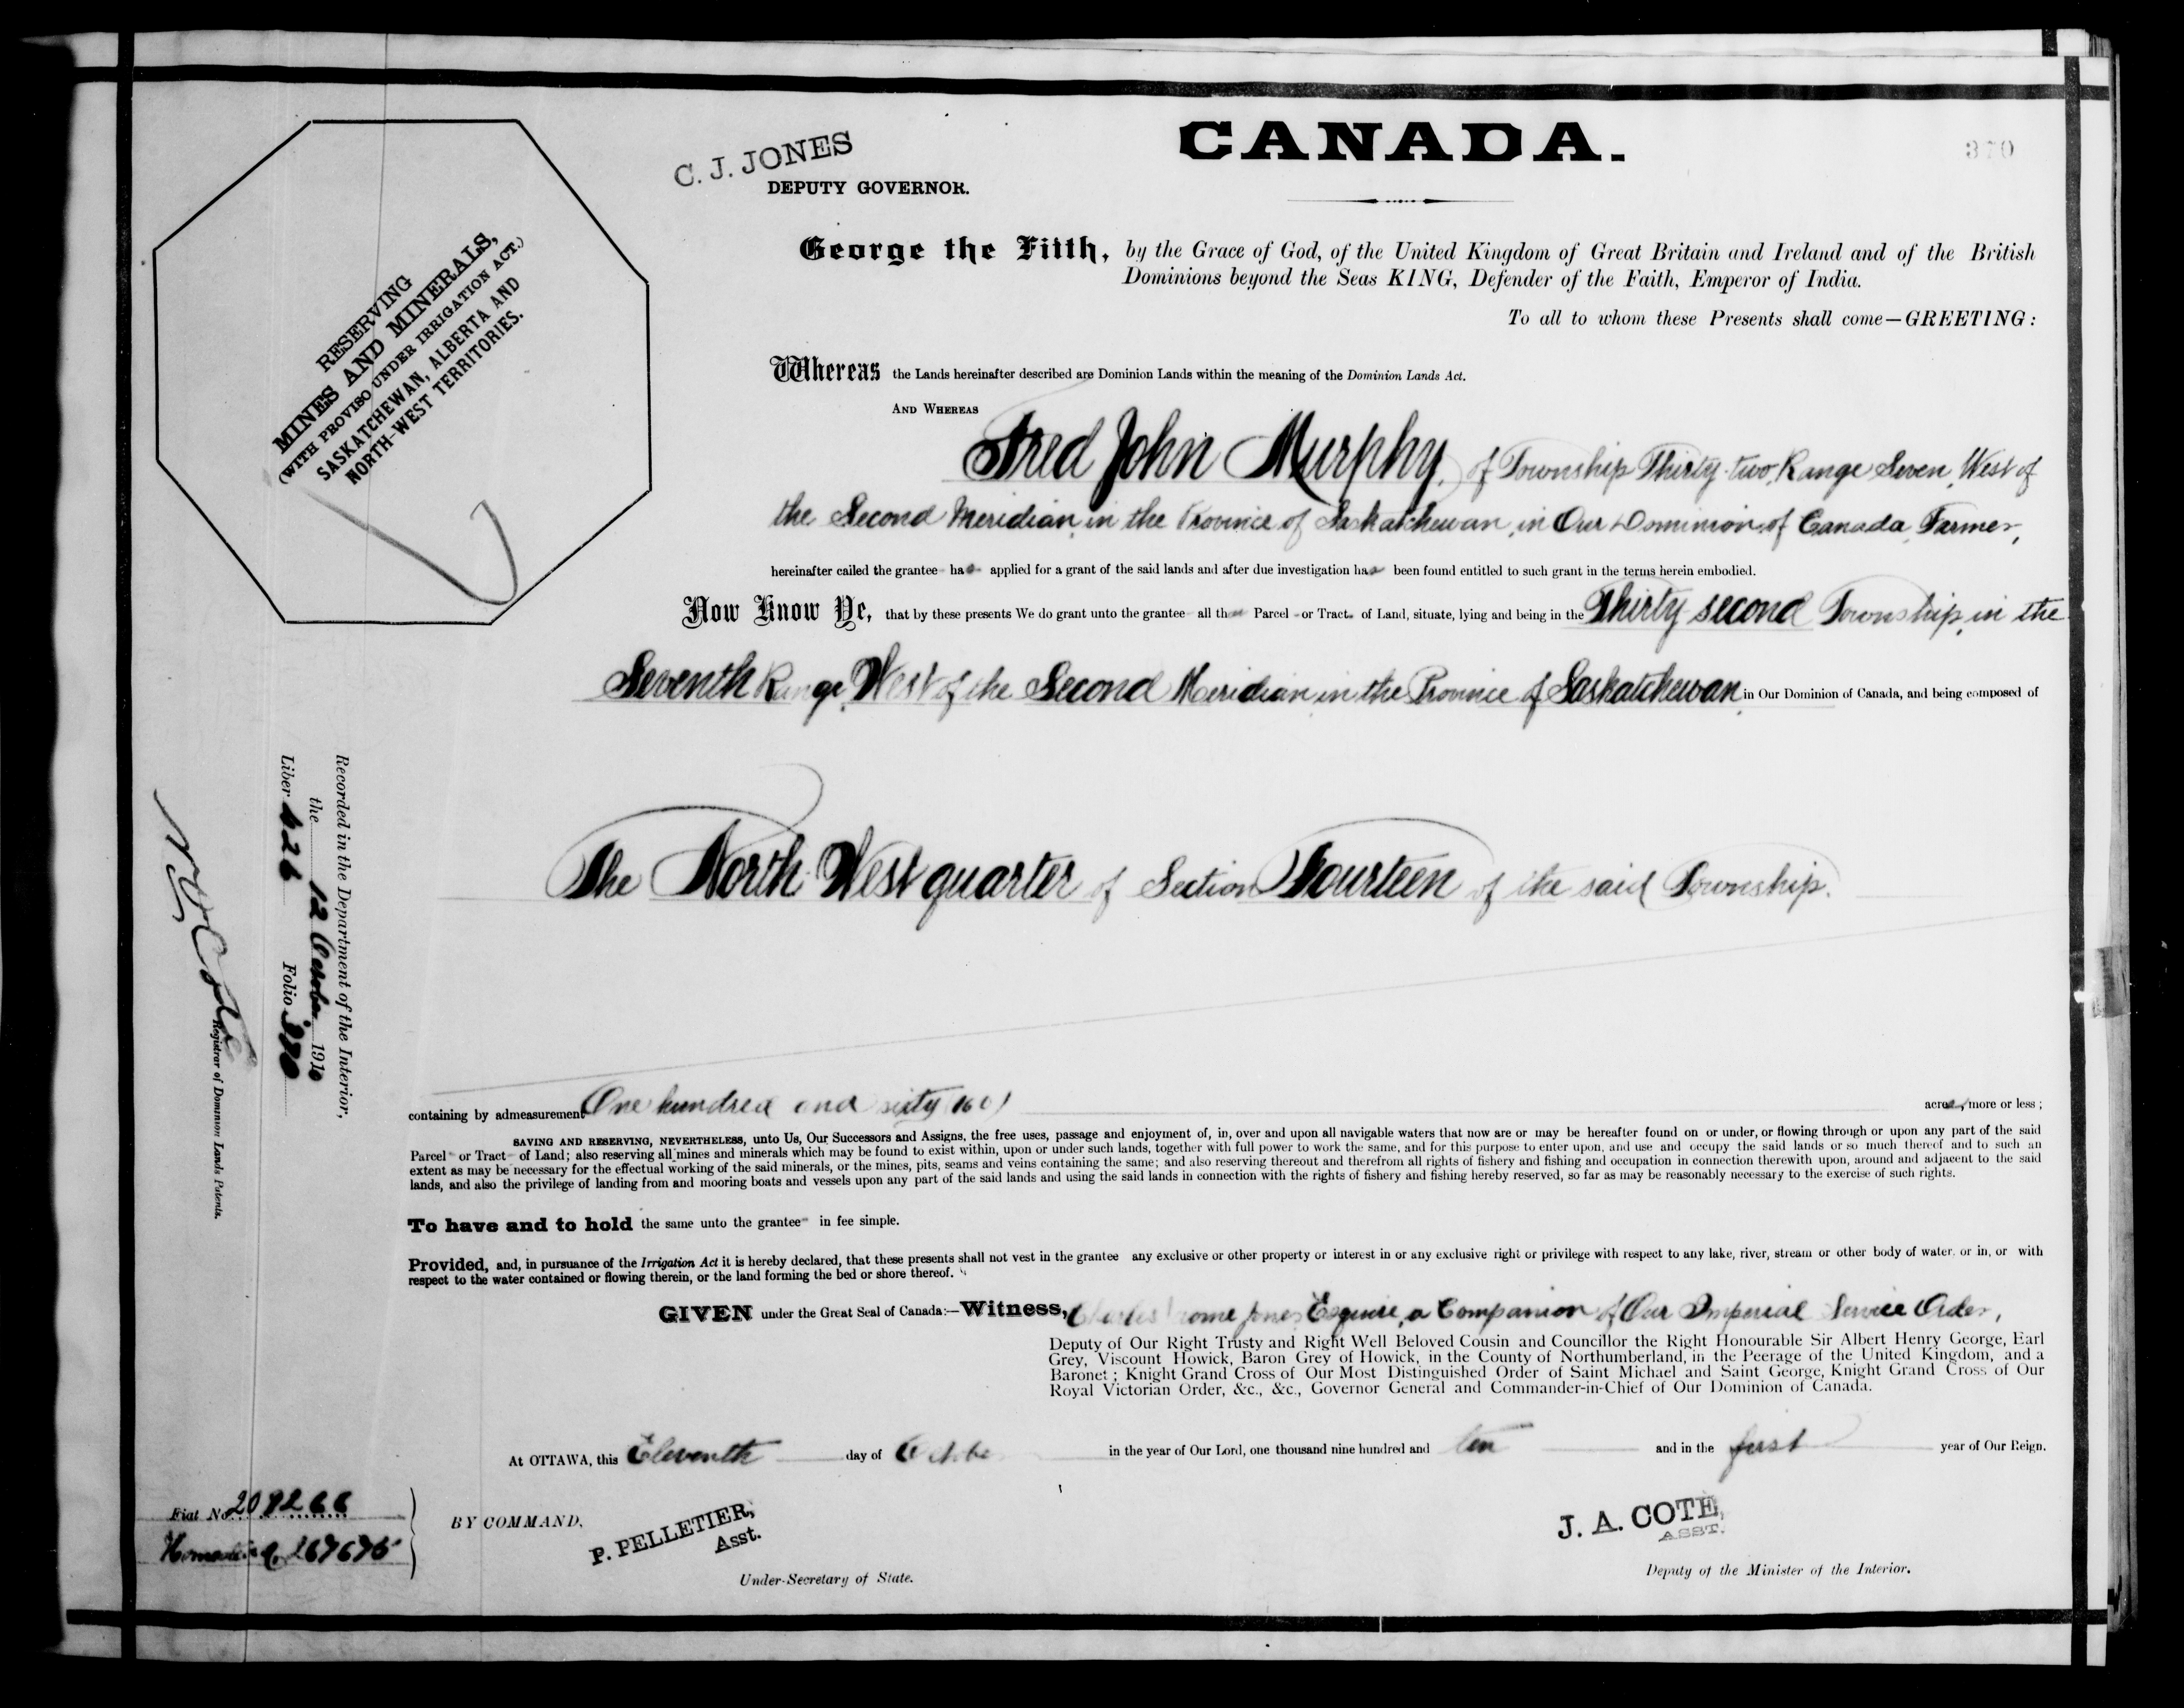 CANADA.
370
C. J. JONES
DEPUTY GOVERNOR.
George the Fifth, by the Grace of God, of the United Kingdom of Great Britain and Ireland and of the British
Dominions beyond the Seas KING, Defender of the Faith, Emperor of India.
To all to whom these Presents shall come—GREETING:
RESERVING
MINES AND MINERALS,
(WITH PROVISO UNDER IRRIGATION ACT.)
SASKATCHEWAN, ALBERTA AND
NORTH-WEST TERRITORIES.
Whereas the Lands hereinafter described are Dominion Lands within the meaning of the Dominion Lands Act.
AND WHEREAS
Fred John Murphy, of Township Thirty-two, Range Seven, West of
the Second Meridian, in the Province of Saskatchewan, in Our Dominion of Canada, Farmer,
hereinafter called the grantee has applied for a grant of the said lands and after due investigation has been found entitled to such grant in the terms herein embodied.
Now Know Ye, that by these presents We do grant unto the grantee all that Parcel or Tract of Land, situate, lying and being in the Thirty second Township, in the
Seventh Range, West of the Second Meridian in the Province of Saskatchewan, in Our Dominion of Canada, and being composed of
The North West quarter of Section Fourteen of the said Township.
containing by admeasurement One hundred and sixty (160) acres, more or less;
SAVING AND RESERVING, NEVERTHELESS, unto Us, Our Successors and Assigns, the free uses, passage and enjoyment of, in, over and upon all navigable waters that now are or may be hereafter found on or under, or flowing through or upon any part of the said
Parcel or Tract of Land; also reserving all mines and minerals which may be found to exist within, upon or under such lands, together with full power to work the same, and for this purpose to enter upon, and use and occupy the said lands or so much thereof and to such an
extent as may be necessary for the effectual working of the said minerals, or the mines, pits, seams and veins containing the same; and also reserving thereout and therefrom all rights of fishery and fishing and occupation in connection therewith upon, around and adjacent to the said
lands, and also the privilege of landing from and mooring boats and vessels upon any part of the said lands and using the said lands in connection with the rights of fishery and fishing hereby reserved, so far as may be reasonably necessary to the exercise of such rights.
To have and to hold the same unto the grantee in fee simple.
Provided, and, in pursuance of the Irrigation Act it is hereby declared, that these presents shall not vest in the grantee any exclusive or other property or interest in or any exclusive right or privilege with respect to any lake, river, stream or other body of water, or in, or with
respect to the water contained or flowing therein, or the land forming the bed or shore thereof.
GIVEN under the Great Seal of Canada:—Witness, Charles Jones Esquire, a Companion of Our Imperial Service Order,
Deputy of Our Right Trusty and Right Well Beloved Cousin and Councillor the Right Honourable Sir Albert Henry George, Earl
Grey, Viscount Howick, Baron Grey of Howick, in the County of Northumberland, in the Peerage of the United Kingdom, and a
Baronet; Knight Grand Cross of Our Most Distinguished Order of Saint Michael and Saint George, Knight Grand Cross of Our
Royal Victorian Order, &c., &c., Governor General and Commander-in-Chief of Our Dominion of Canada.
At OTTAWA, this Eleventh day of October in the year of Our Lord, one thousand nine hundred and ten and in the first year of Our Reign.
BY COMMAND,
P. PELLETIER,
Asst.
Under-Secretary of State.
J. A. COTE,
ASST.
Deputy of the Minister of the Interior.
Recorded in the Department of the Interior,
the 12 October 1910
Liber 426 Folio 370
Registrar of Dominion Lands Patents.
Fiat No
Homestead